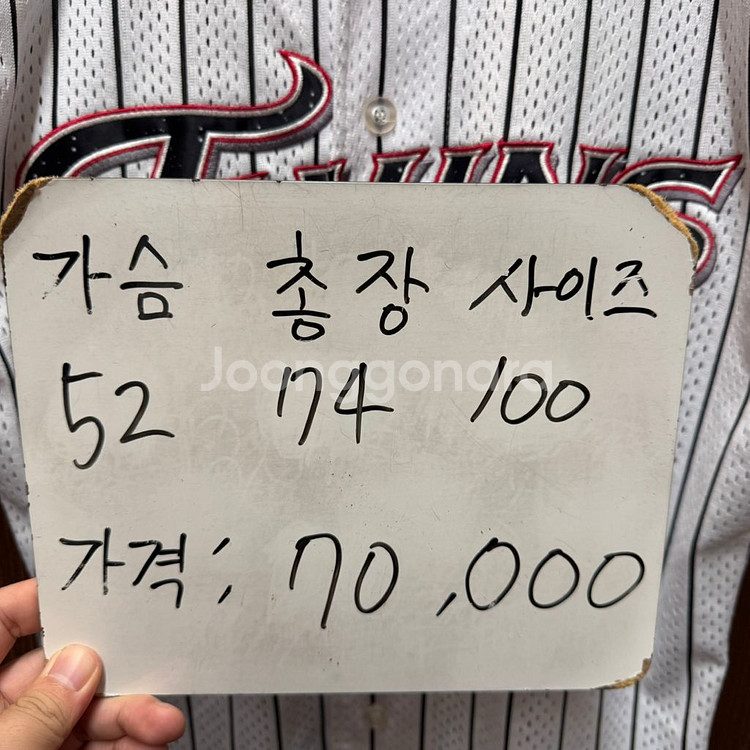 TWINS
가슴 총장 사이즈
52 74 100
Joonggonara
가격; 70,000